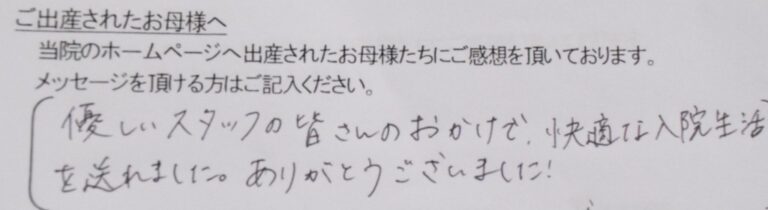 ご出産されたお母様へ
当院のホームページへ出産されたお母様たちにご感想を頂いております。
メッセージを頂ける方はご記入ください。
優しいスタッフの皆さんのおかげで、快適な入院生活
を送れました。ありがとうございました!